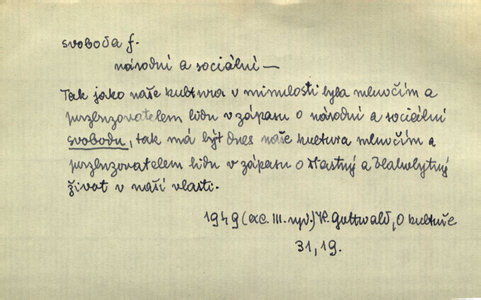 svoboda f.
národní a sociální —
Tak jako naše kultura v minulosti byla mluvčím a
burcovatelem lidu v zápasu o národní a sociální
svobodu, tak má být dnes naše kultura mluvčím a
burcovatelem lidu v zápasu o šťastný a blahobytný
život v naší vlasti.
1949 III. K. Gottwald, O kultuře
31, 19.